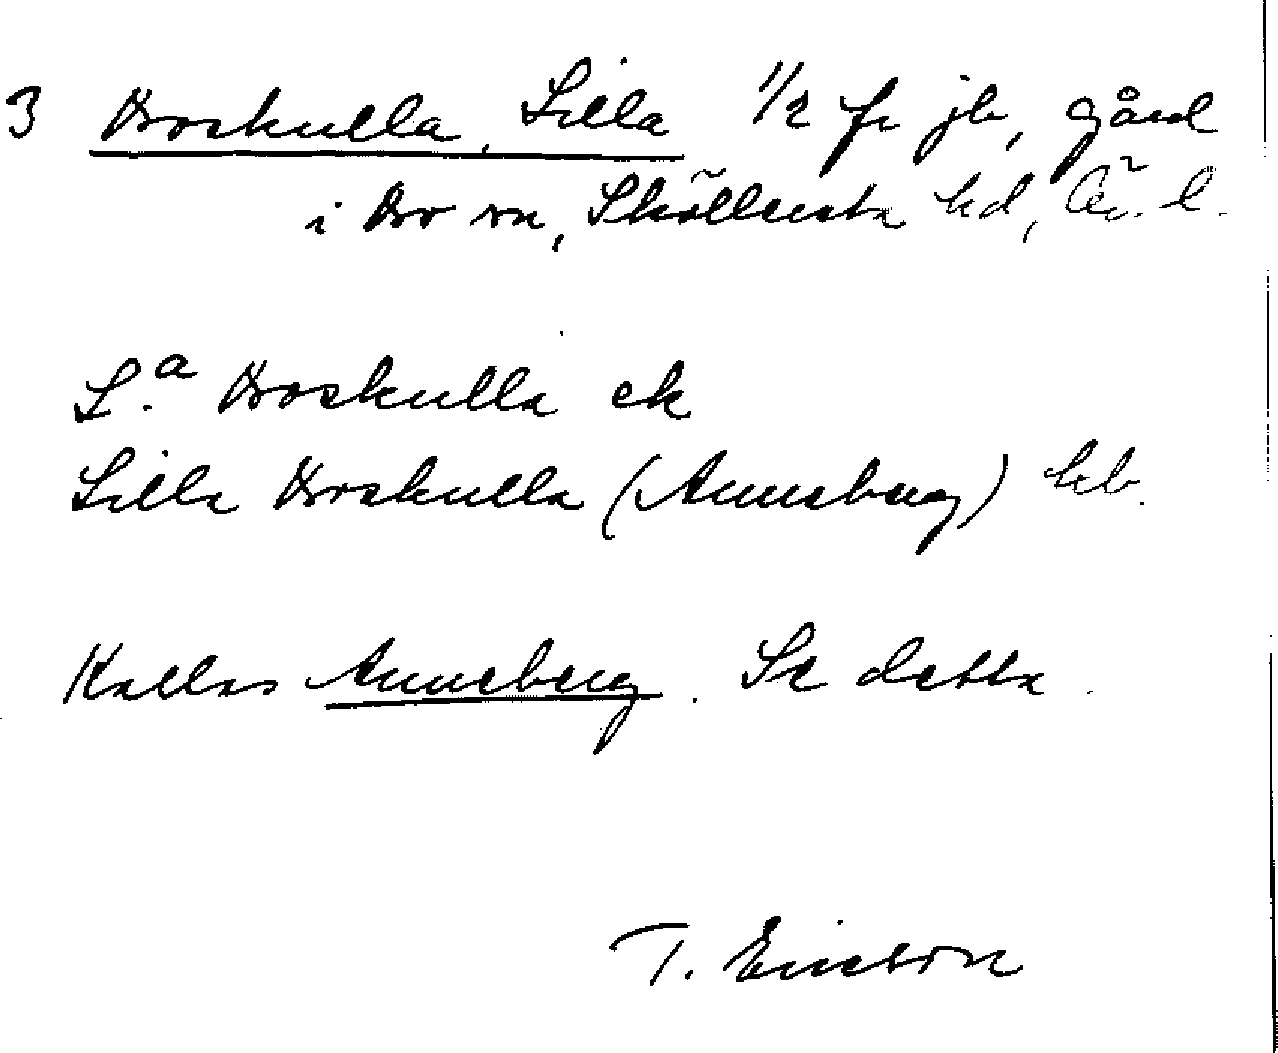 3 Boskulla, Lilla 1/2 fr jb, gård
i Bo sn, Sköllersta hd, Ör. l.
L.a Boskulla ek
Lilla Boskulla (Anneberg) kb.
Kallas Anneberg. Se detta.
T. Ericson